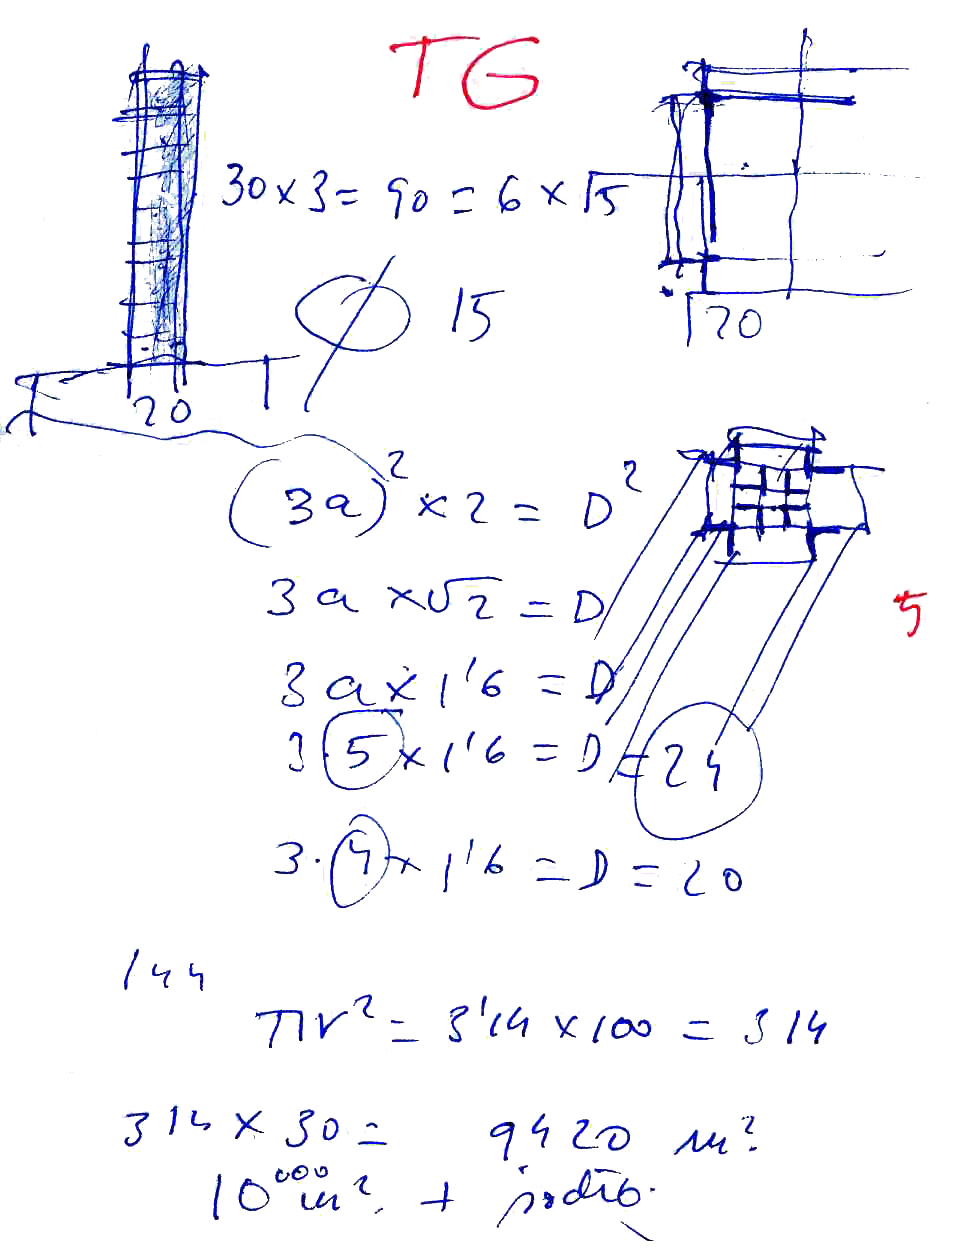 TG
30 x 3 = 90 = 6 x 15
Ø 15
20
20
(3a)² x 2 = D²
3a x √2 = D
5
3a x 1'6 = D
3 5 x 1'6 = D = 24
3 · 4 x 1'6 = D = 20
144
πr² = 3'14 x 100 = 314
314 x 30 = 9420 m²
10000 m² +